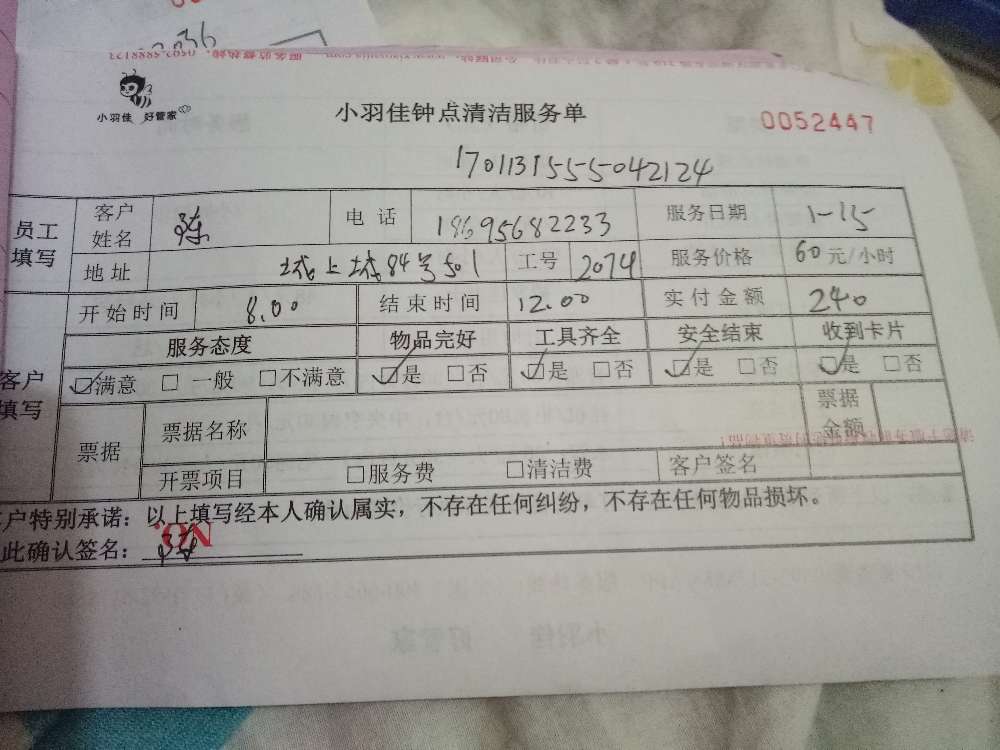 小羽佳 好管家
小羽佳钟点清洁服务单
0052447
1701131555042124
员工填写 客户姓名 陈 电话 18695682233 服务日期 1-15
地址 城上城84号501 工号 2074 服务价格 60元/小时
客户填写 开始时间 8.00 结束时间 12.00 实付金额 240
服务态度 物品完好 工具齐全 安全结束 收到卡片
☑满意 □一般 □不满意 ☑是 □否 ☑是 □否 ☑是 □否 ☑是 □否
票据 票据名称 票据金额
开票项目 □服务费 □清洁费 客户签名
客户特别承诺：以上填写经本人确认属实，不存在任何纠纷，不存在任何物品损坏。
此确认签名：陈
NO.